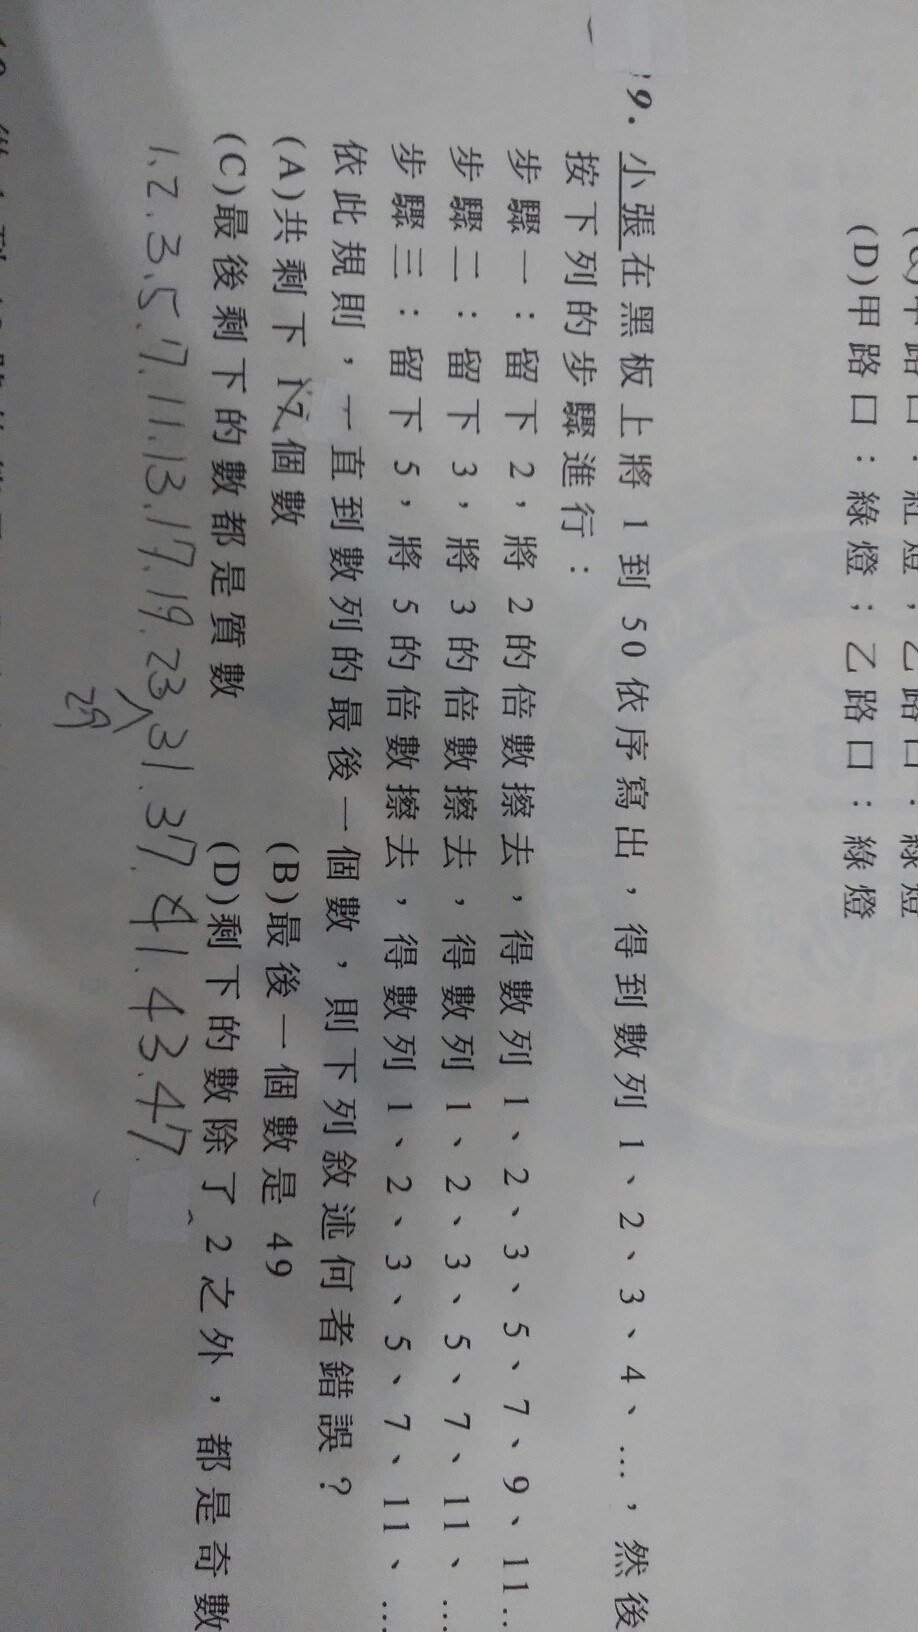 (D)甲路口：綠燈；乙路口：綠燈
9. 小張在黑板上將 1 到 50 依序寫出，得到數列 1、2、3、4、…，然後
按下列的步驟進行：
步驟一：留下 2，將 2 的倍數擦去，得數列 1、2、3、5、7、9、11…
步驟二：留下 3，將 3 的倍數擦去，得數列 1、2、3、5、7、11、…
步驟三：留下 5，將 5 的倍數擦去，得數列 1、2、3、5、7、11、…
依此規則，一直到數列的最後一個數，則下列敘述何者錯誤？
(A)共剩下 個數 (B)最後一個數是 49
(C)最後剩下的數都是質數 (D)剩下的數除了 2 之外，都是奇數
1.2.3.5.7.11.13.17.19.23 31.37.41.43.47.
29